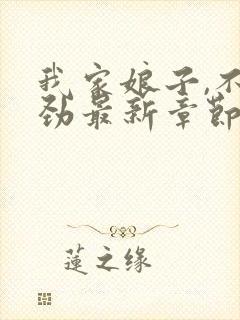 我家娘子,不
劲最新章节
蓮之缘